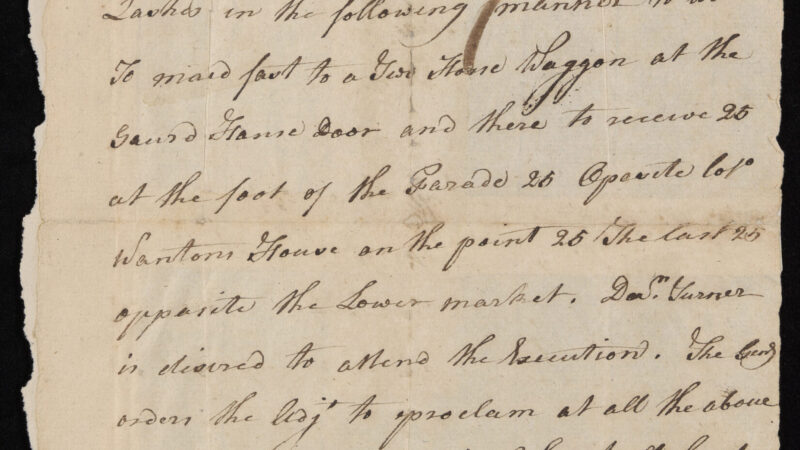 Lashes in the following manner
To maid fast to a Two Horse Waggon at the
Gaurd House Door and there to receive 25
at the foot of the Parade 25 Oposite Colo
Wantons House on the point 25 The last 25
opposite the Lower market. Turner
is disired to attend the Execution. The Genl
orders the Adjt to proclam at all the above